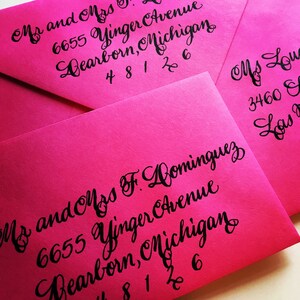 Mr and Mrs F. Dominguez
6655 Yinger Avenue
Dearborn, Michigan
4 8 1 2 6
Ms
3460
Mr and Mrs F. Dominguez
6655 Yinger Avenue
Dearborn, Michigan
4 8 1 2 6